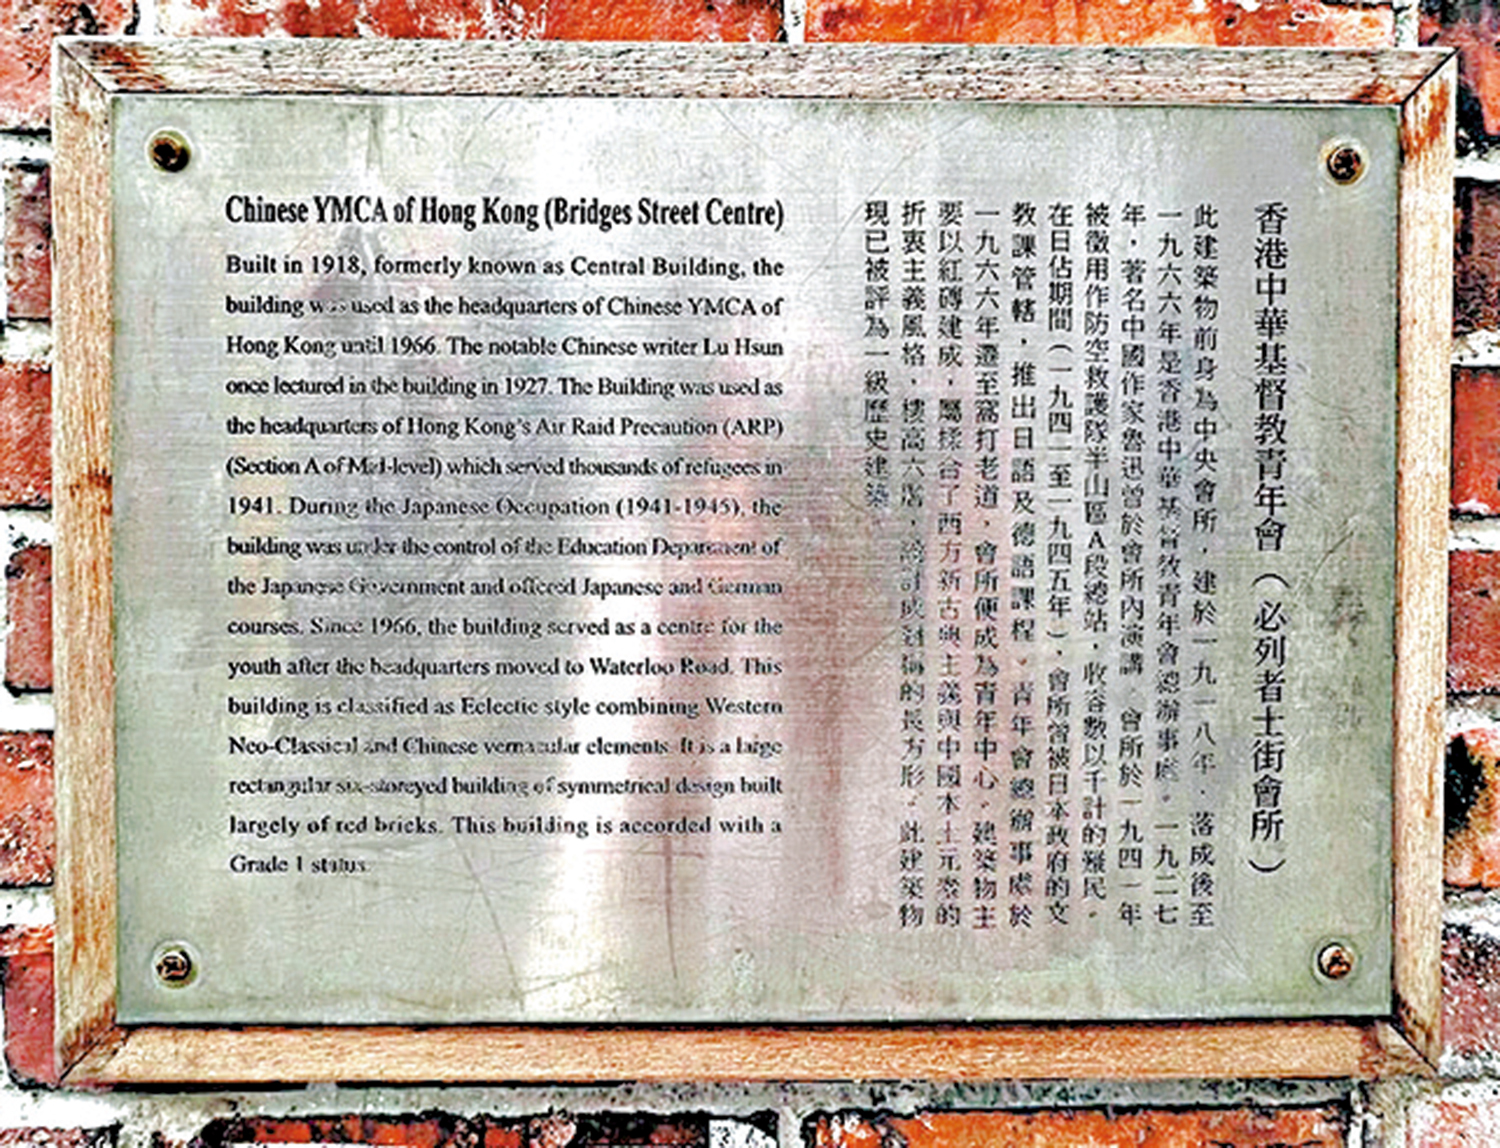 Chinese YMCA of Hong Kong (Bridges Street Centre)
Built in 1918, formerly known as Central Building, the
building was used as the headquarters of Chinese YMCA of
Hong Kong until 1966. The notable Chinese writer Lu Hsun
once lectured in the building in 1927. The Building was used as
the headquarters of Hong Kong's Air Raid Precaution (ARP)
(Section A of Mid-level) which served thousands of refugees in
1941. During the Japanese Occupation (1941-1945), the
building was under the control of the Education Department of
the Japanese Government and offered Japanese and German
courses. Since 1966, the building served as a centre for the
youth after the headquarters moved to Waterloo Road. This
building is classified as Eclectic style combining Western
Neo-Classical and Chinese vernacular elements. It is a large
rectangular six-storeyed building of symmetrical design built
largely of red bricks. This building is accorded with a
Grade 1 status.
香港中華基督教青年會（必列者士街會所）
此建築物前身為中央會所，建於一九一八年，落成後至
一九六六年是香港中華基督教青年會總辦事處。一九二七
年，著名中國作家魯迅曾於會所內演講，會所於一九四一年
被徵用作防空救護隊半山區A段總站，收容數以千計的難民。
在日佔期間（一九四一至一九四五年），會所曾被日本政府的文
教課管轄，推出日語及德語課程。青年會總辦事處於
一九六六年遷至窩打老道，會所便成為青年中心。建築物主
要以紅磚建成，屬揉合了西方新古典主義與中國本土元素的
折衷主義風格，樓高六層，設計成對稱的長方形。此建築物
現已被評為一級歷史建築。